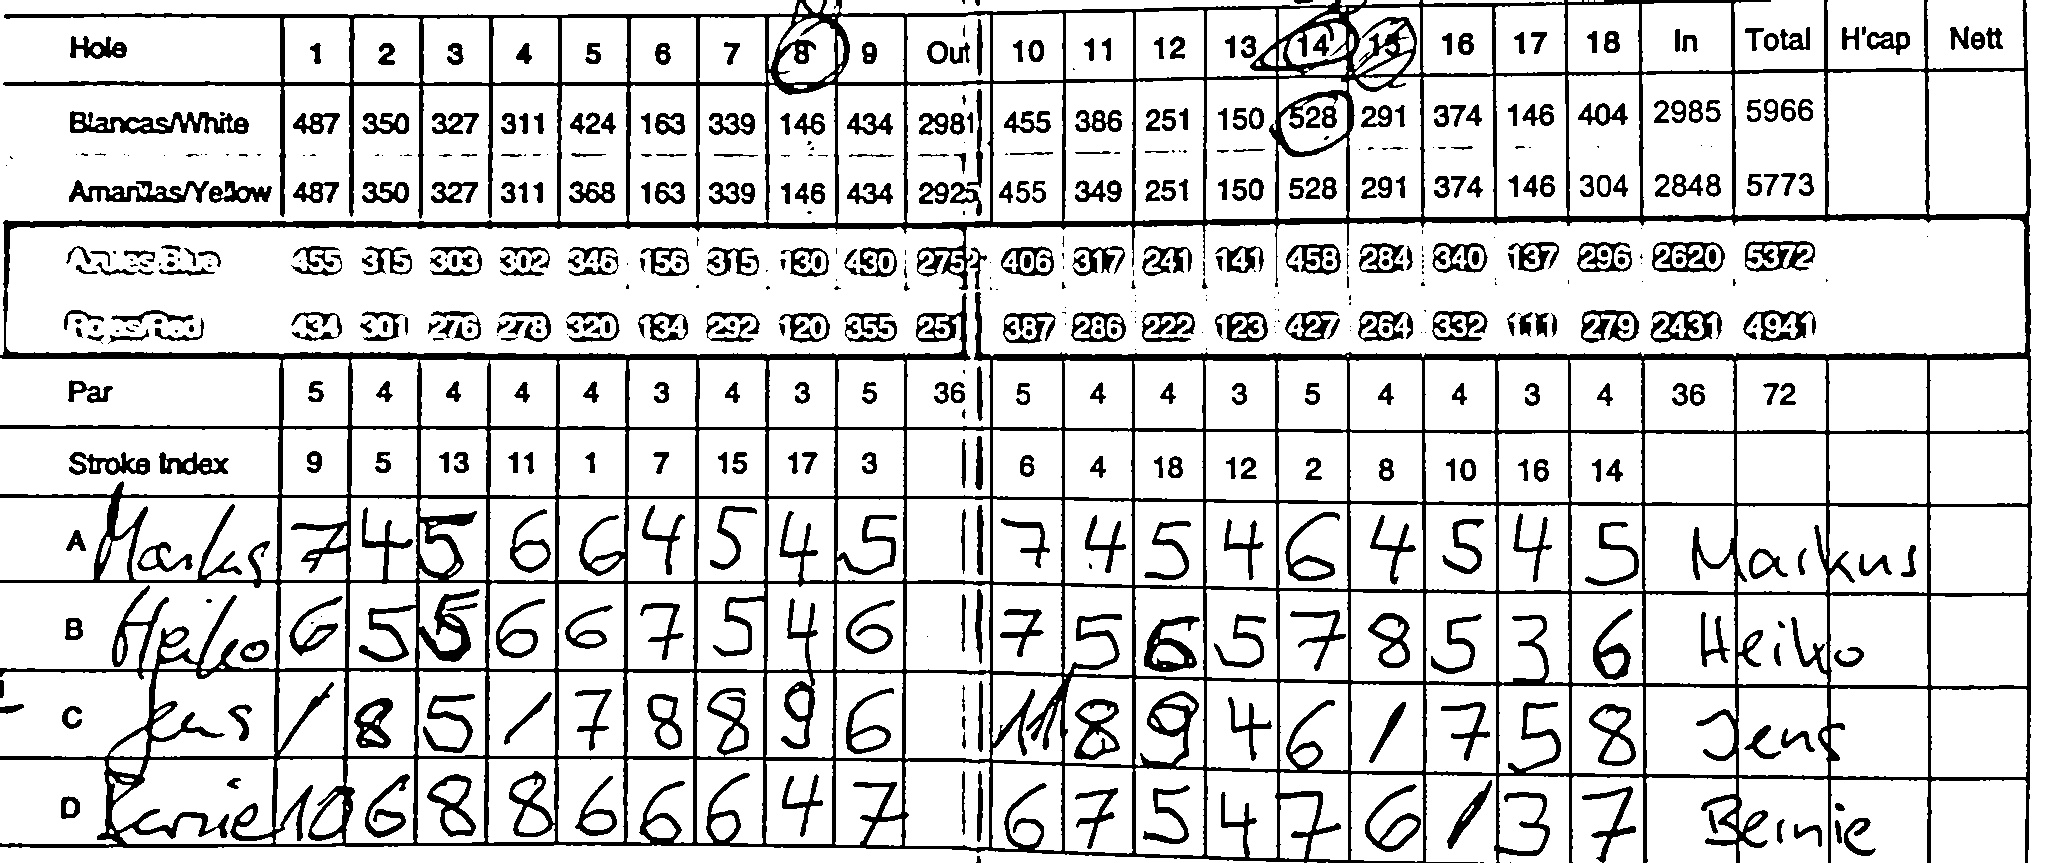 Hole 1 2 3 4 5 6 7 8 9 Out 10 11 12 13 14 15 16 17 18 In Total H'cap Nett
Blancas/White 487 350 327 311 424 163 339 146 434 2981 455 386 251 150 528 291 374 146 404 2985 5966
Amarillas/Yellow 487 350 327 311 368 163 339 146 434 2925 455 349 251 150 528 291 374 146 304 2848 5773
Azules/Blue 455 315 303 302 346 156 315 130 430 2752 406 317 241 141 458 284 340 137 296 2620 5372
Rojas/Red 434 301 276 278 320 134 292 120 355 251 387 286 222 123 427 264 332 111 279 2431 4941
Par 5 4 4 4 4 3 4 3 5 36 5 4 4 3 5 4 4 3 4 36 72
Stroke Index 9 5 13 11 1 7 15 17 3 6 4 18 12 2 8 10 16 14
A Markus 7 4 5 6 6 4 5 4 5 7 4 5 4 6 4 5 4 5 Markus
B Heiko 6 5 5 6 6 7 5 4 6 7 5 6 5 7 8 5 3 6 Heiko
C Jens / 8 5 / 7 8 8 9 6 8 9 4 6 / 7 5 8 Jens
D Bernie 10 6 8 8 6 6 6 4 7 6 7 5 4 7 6 / 3 7 Bernie